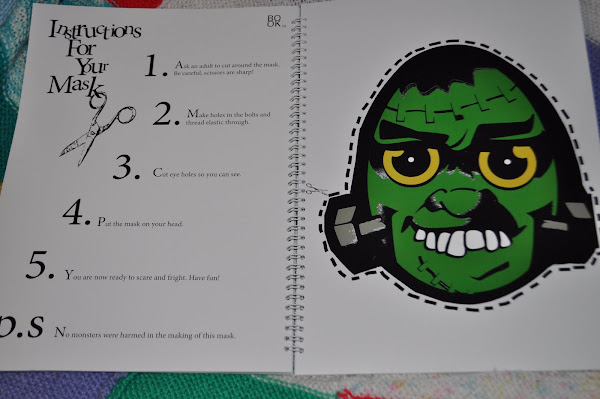 Instructions
For
Your
Mask
BO
OK
1. Ask an adult to cut around the mask.
Be careful, scissors are sharp!
2. Make holes in the bolts and
thread elastic through.
3. Cut eye holes so you can see.
4. Put the mask on your head.
5. You are now ready to scare and fright. Have fun!
p.s No monsters were harmed in the making of this mask.